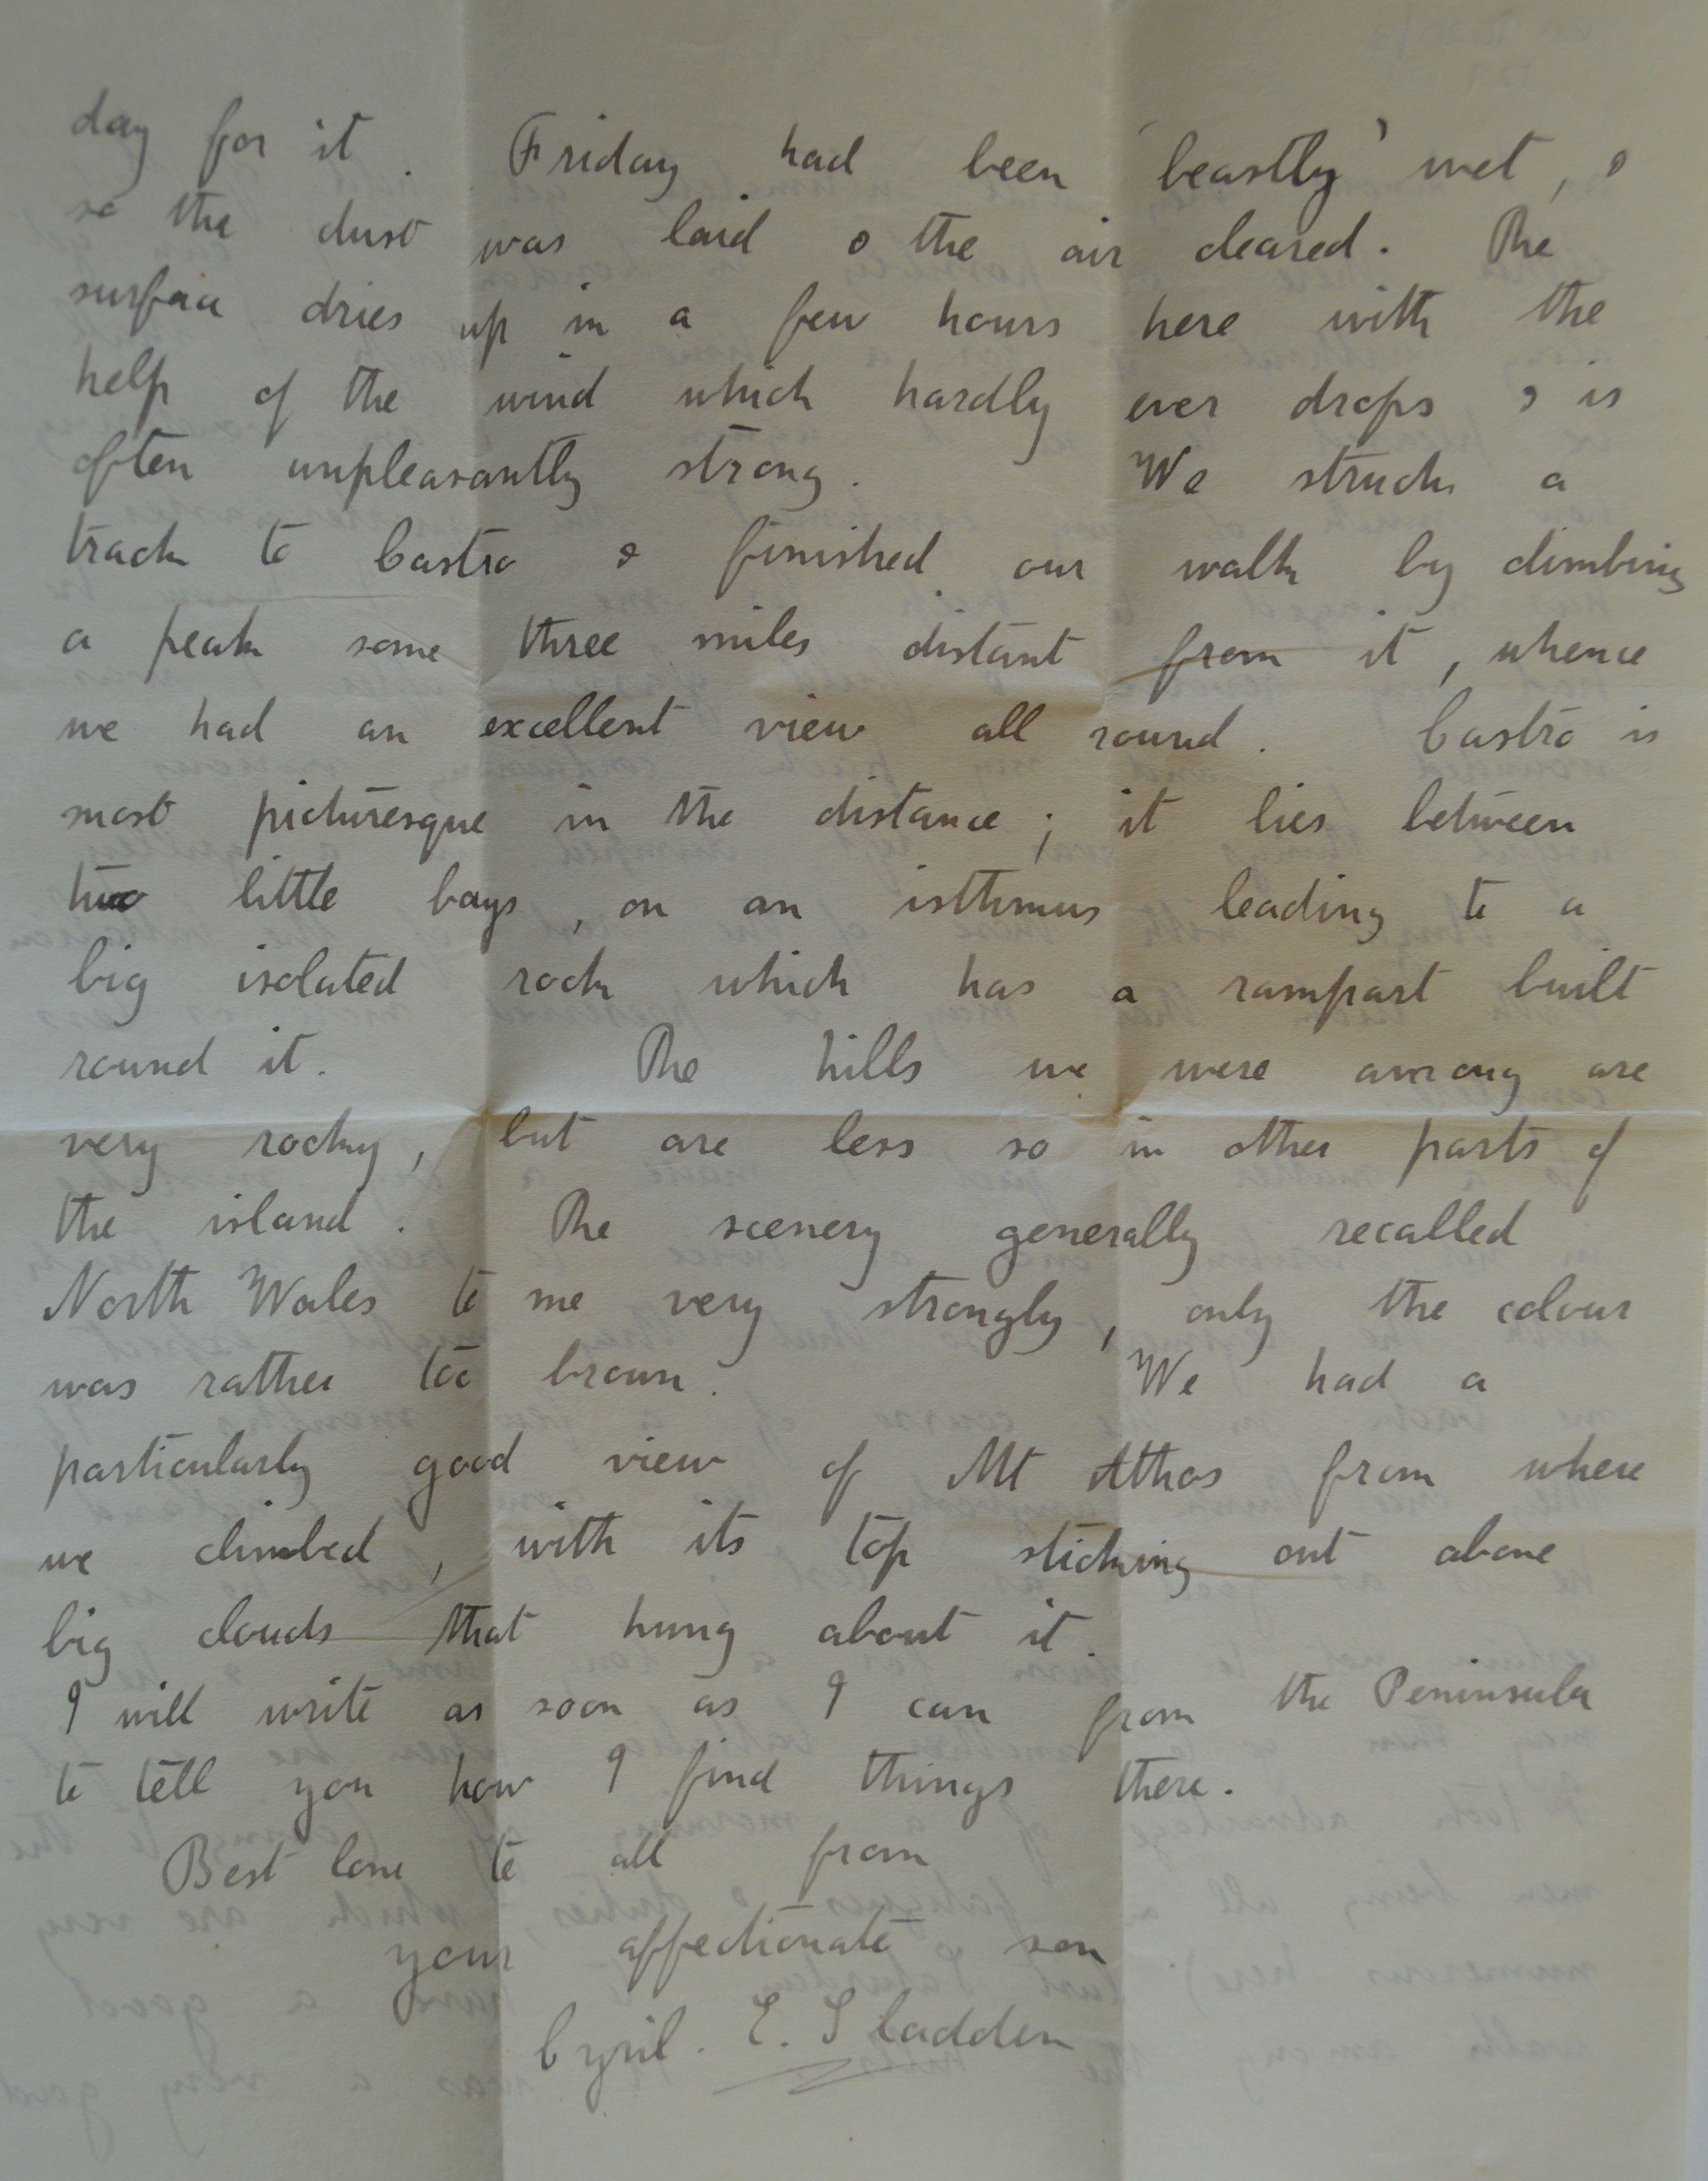 day for it. Friday had been 'beastly' wet, &
so the dust was laid & the air cleared. The
surface dries up in a few hours here with the
help of the wind which hardly ever drops & is
often unpleasantly strong. We struck a
track to Castro & finished our walk by climbing
a peak some three miles distant from it, whence
we had an excellent view all round. Castro is
most picturesque in the distance; it lies between
two little bays, on an isthmus leading to a
big isolated rock which has a rampart built
round it. The hills we were among are
very rocky, but are less so in other parts of
the island. The scenery generally recalled
North Wales to me very strongly, only the colour
was rather too brown. We had a
particularly good view of Mt Athos from where
we climbed, with its top sticking out above
big clouds that hung about it.
I will write as soon as I can from the Peninsula
to tell you how I find things there.
Best love to all from
your affectionate son
Cyril. E. Sladden